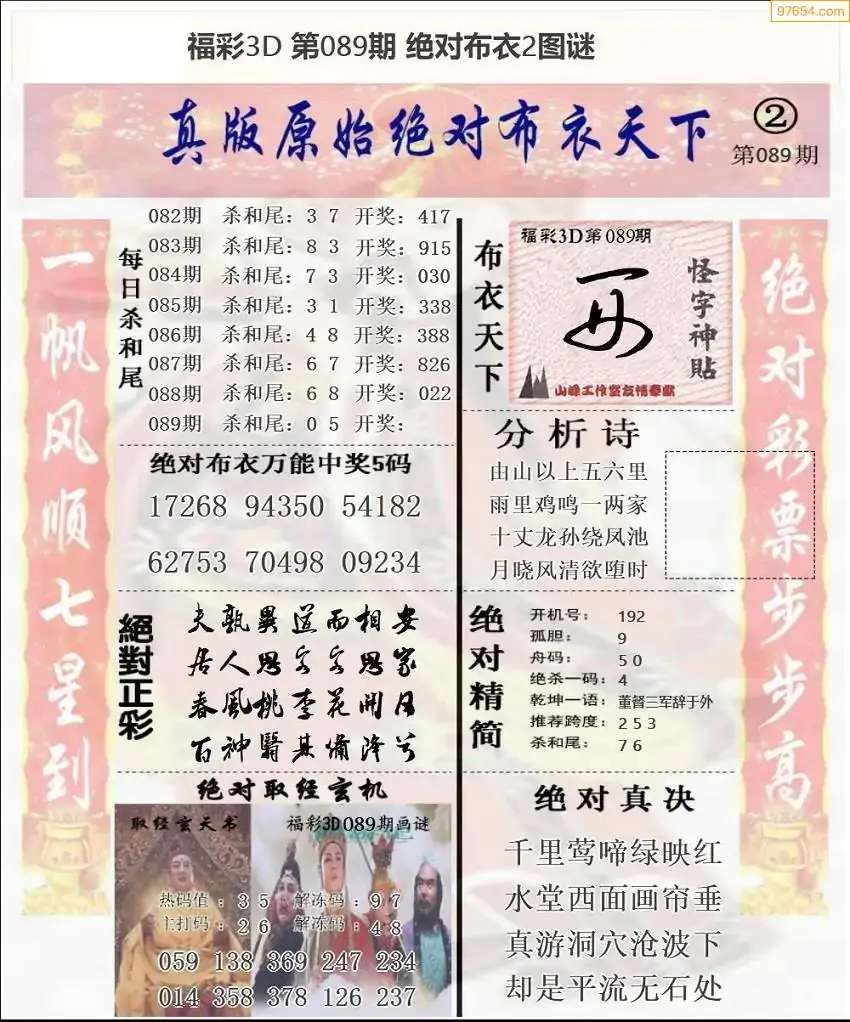 97654.com
福彩3D 第089期 绝对布衣2图谜
真版原始绝对布衣天下
②
第089期
一帆风顺七星到
每日杀和尾
082期 杀和尾：3 7 开奖：417
083期 杀和尾：8 3 开奖：915
084期 杀和尾：7 3 开奖：030
085期 杀和尾：3 1 开奖：338
086期 杀和尾：4 8 开奖：388
087期 杀和尾：6 7 开奖：826
088期 杀和尾：6 8 开奖：022
089期 杀和尾：0 5 开奖：
绝对布衣万能中奖5码
17268 94350 54182
62753 70498 09234
絕對正彩
夫孰異道而相安
居人思客客思家
春風桃李花開日
百神翳其備降兮
绝对取经玄机
取经玄天书
福彩3D089期画谜
热码值：3 5 解冻码：9 7
主打码：2 6 解冻码：4 8
059 138 369 247 234
014 358 378 126 237
布衣天下
福彩3D第089期
怪字神贴
山峰工作室友情奉献
分析诗
由山以上五六里
雨里鸡鸣一两家
十丈龙孙绕凤池
月晓风清欲堕时
绝对精简
开机号：192
孤胆：9
舟码：5 0
绝杀一码：4
乾坤一语：董督三军辞于外
推荐跨度：2 5 3
杀和尾：7 6
绝对真决
千里莺啼绿映红
水堂西面画帘垂
真游洞穴沧波下
却是平流无石处
绝对彩票步步高